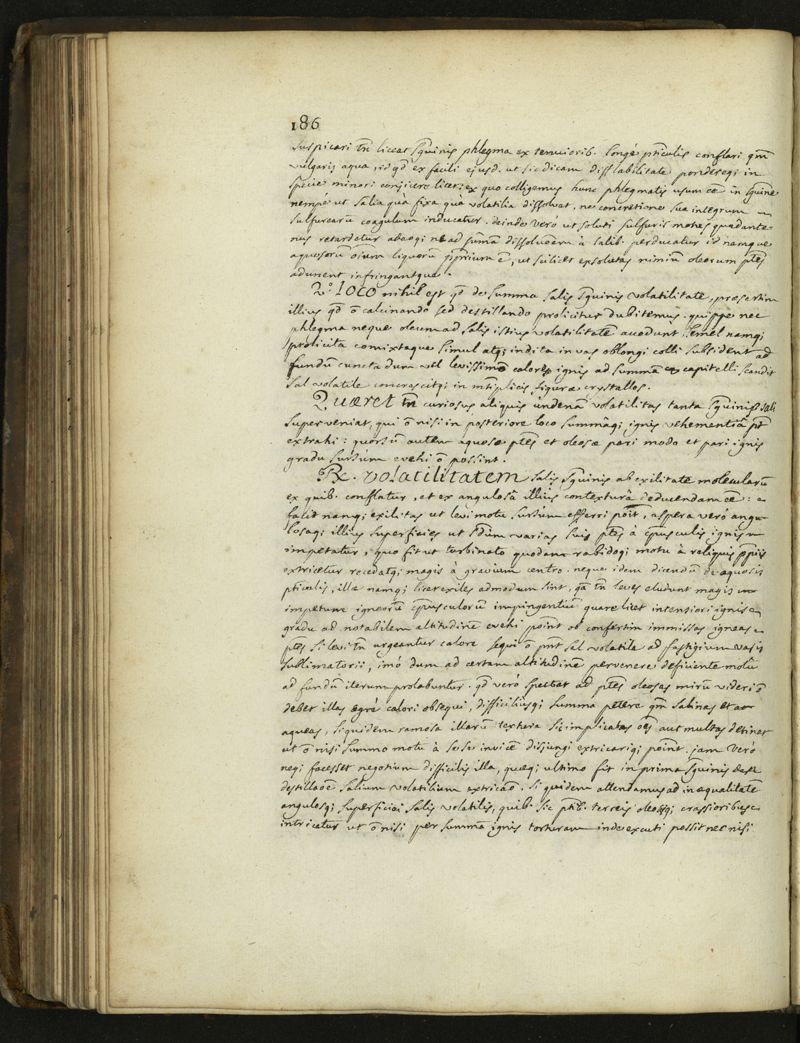 186
suspicari tñ liceat sguinis phlegma ex tenuiorib. longè pticulis conflari qm̃
vulgaris aqua, id qd ex facili ejusd. ut sic dicam distillabilitate pondereqi in
specie minori conjicere licet; ex quo colligemus hunc phlegmatis usum eẽ in sguine
nempè ut salia quà fixa quà volatilia dissolvat, ne concretione sua integrum in
sulfurearũ coagulum inducatur. deinde verò ut soluti sulfuris motus quadante
nus retardetur abeoqi ne ad sum̃ã dissoluõem à salib. perducatur id namque
aquosorũ oĩum liquorũ pprium ẽ, ut scilicet exsolutas nimiũ oleorum ptes
adunent infringantque.
2.º loco nihil est qd de summa salis sguinis volatilitate, præsertim
illius qd õ calcinando sed destillando prolicitur dubitemus. quippe nec
phlegma neque oleum ad salis istius volatilitatẽ accedunt. semel namqi
prolicita comixtaque simul atqi indita in vas oblongi colli subsident ad
fundũ cuncta dum vel levissimo calore ignis ad summã capitelli scandit
sal volatile concrescitqi in mtiplicis figuræ crystallos.
Quæret tñ curiosus aliquis undenã volatilitas tanta sguinis sali
superveniat, qui õ nisi in posteriore loco summaqi ignis vehementiã pt̃
extrahi: quorsũ autem aquose ptes et oleose pari modo et pari ignis
gradu sursùm evehi õ possint.
Rx. volatilitatem salis sguinis ab exilitate molecularũ
ex quib. conflatur, et ex angulosâ illius contexturâ deducendam eẽ:
facit namqi exilitas ut levi motu sursùm efferri poĩt, aspera verò angu
losaqi illius superficies ut sdùm varias suis ptes à cpusculis ignis
impetatur, quo fit ut turbinato quodam rabidoqi motu à reliquis ppiis
extricetur recedatqi magis à gravium centro. neque idem dicendũ de aquosis
pticulis, illæ namqi licet exiles admodum sint, qã tñ leves eludunt magis
impetum igneorũ cpusculorũ impingentiũ quare licet intensiori ignis
gradu ad notabilem altitudinẽ evehi point ob confertim immissas igneas
ptes si levi tñ urgeantur calore sequi õ pnt sal volatile ad fastigium vasis
sublimatorii, imó dum ad certam altitudinẽ pervenere deficiente motu
ad fundũ iterum prolabuntur. qd verò spectat ad ptes oleosas mirũ videri õ
debet illas ægrè calori obsequi, difficiliusqi summa petere qm̃ salinas et
aqueas, siquidem ramosa illarũ textura sic implicatas oẽs aut multas detinet
ut õ nisi summo motu à se invicẽ disjungi extricariqi point. jam verò
neqi facesset negotium difficilis illa, quæqi ultimo fit in prima sguinis
destillaõe salium volatilium extricaõ. Si quidem attendamus ad inæqualitatẽ
angulosqi superficiei salis volatilis, quib. sic ptib. terreis oleosqi crassioribus
intricatur ut õ nisi per summã ignis torturam inde excuti possit nec nisi